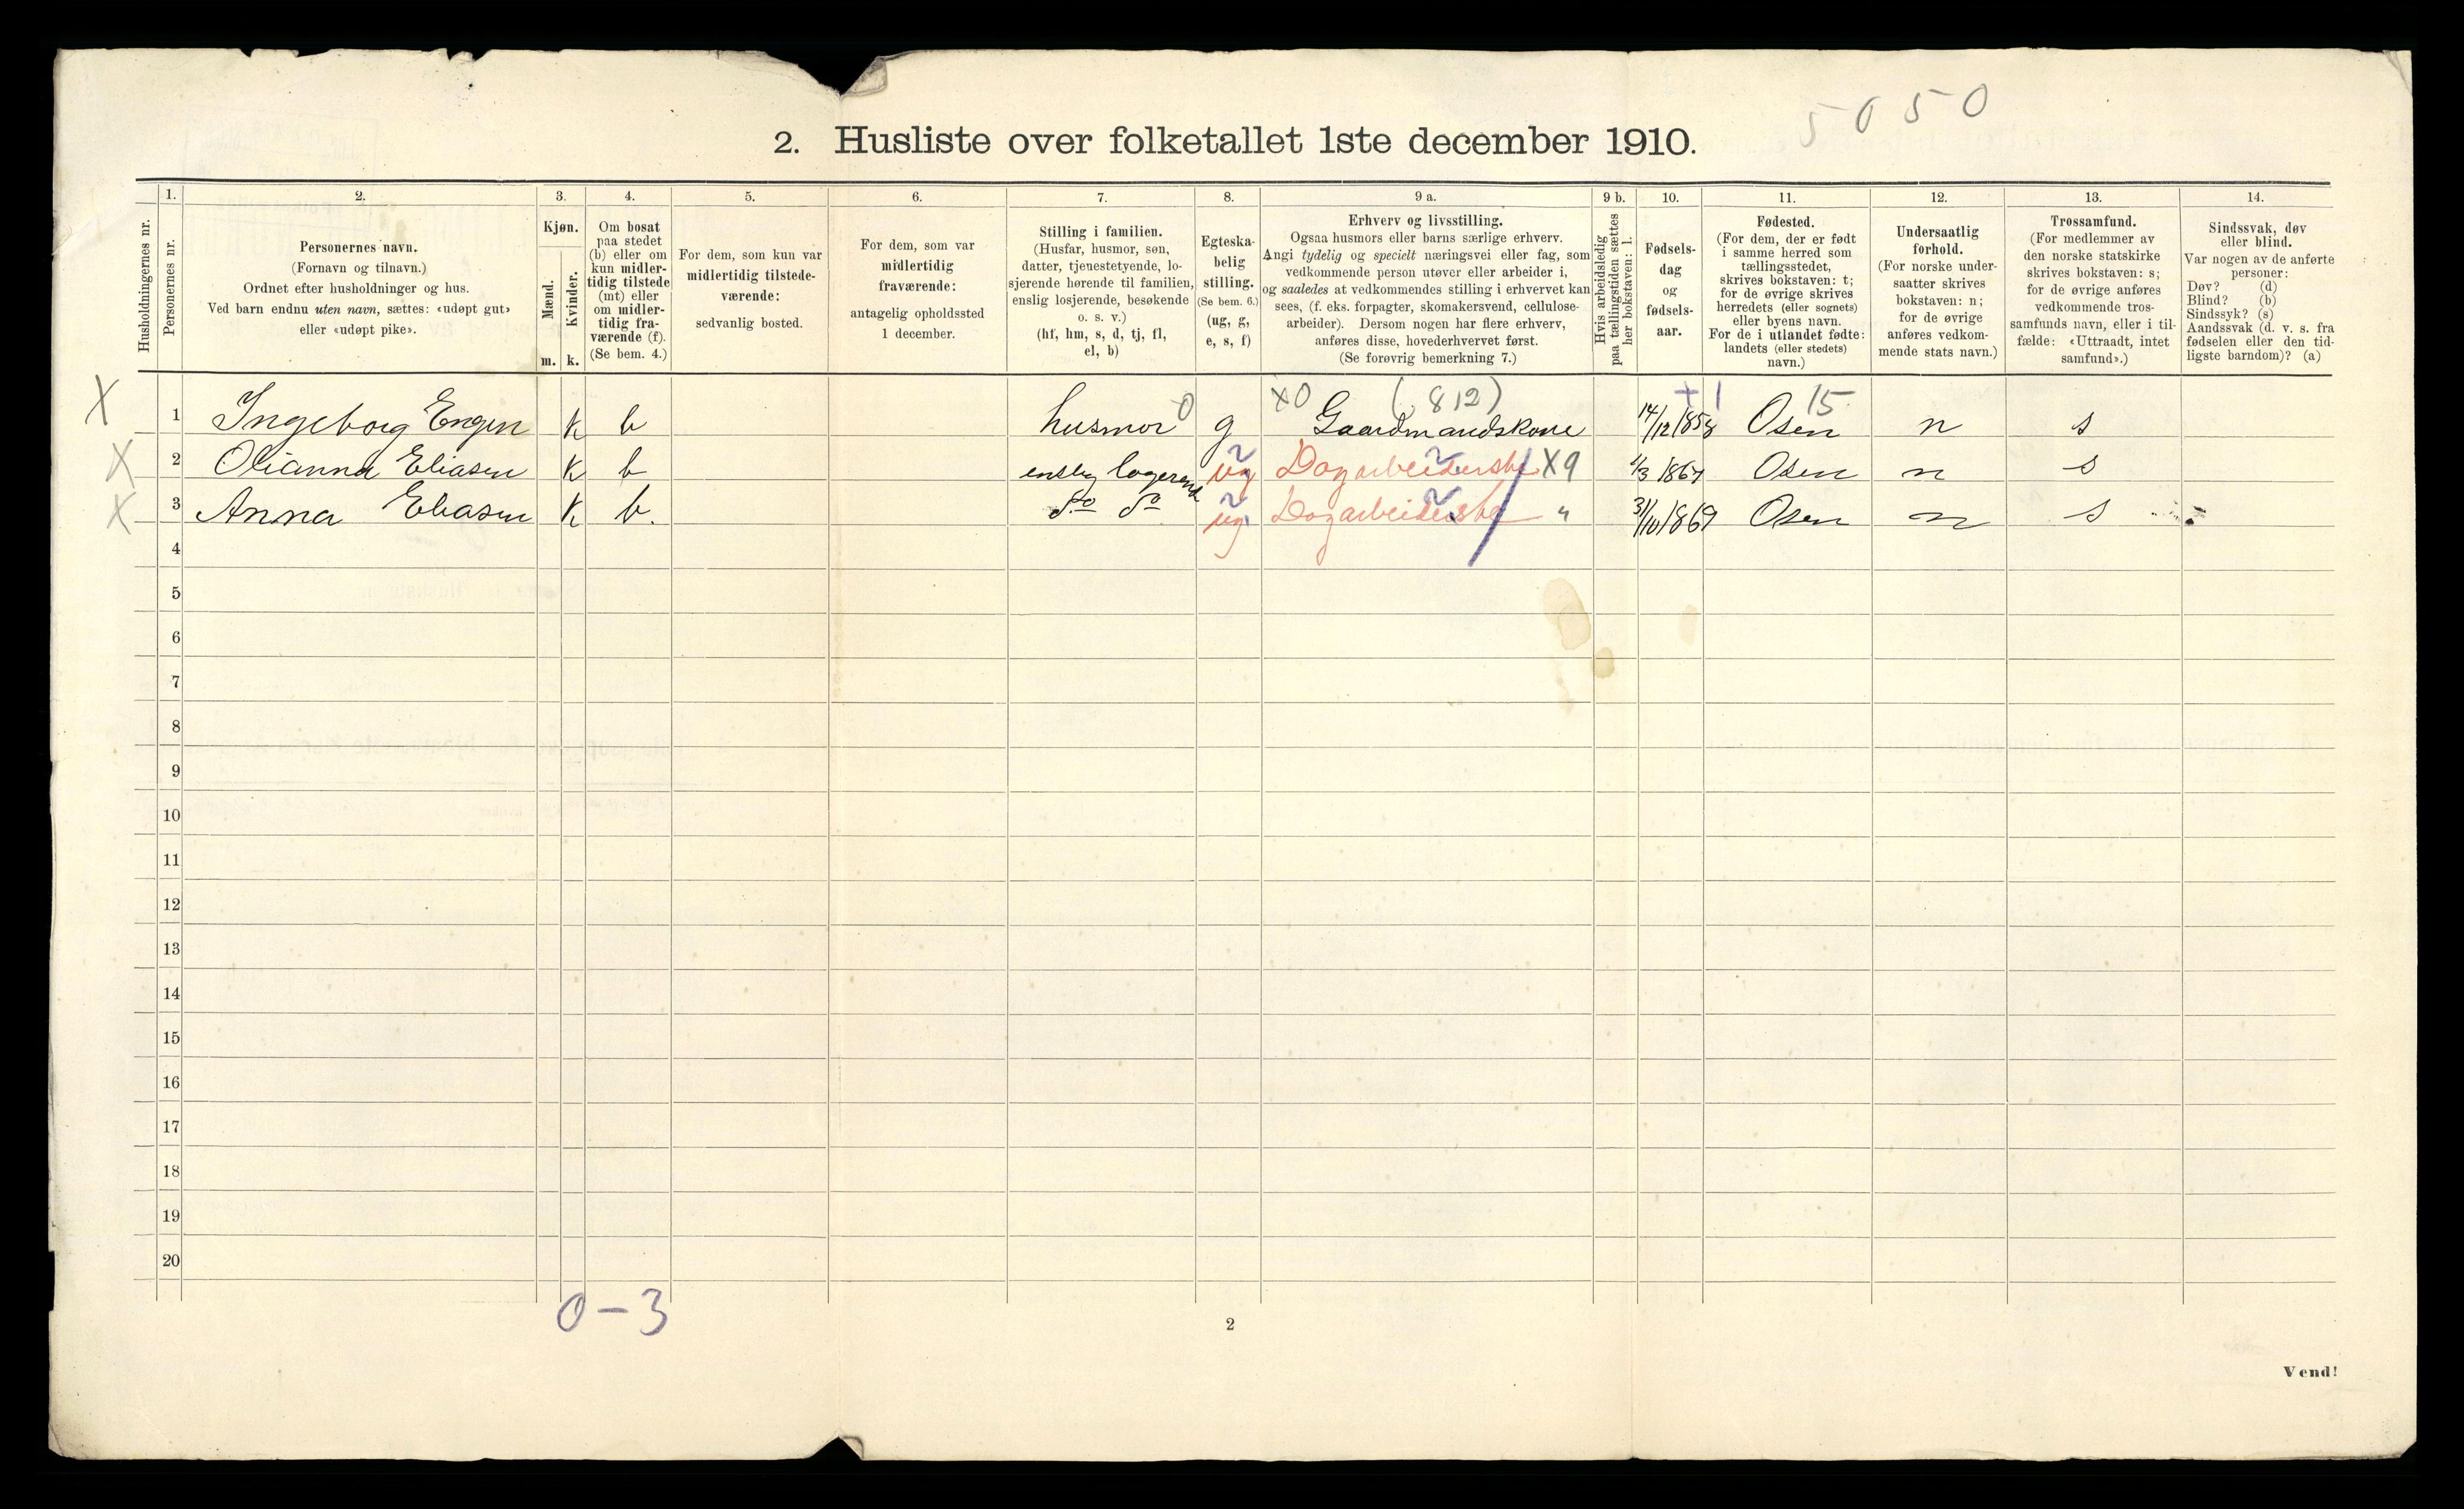 5050
2. Husliste over folketallet 1ste december 1910.
Husholdningernes nr.
1.
Personernes nr.
2.
Personernes navn.
(Fornavn og tilnavn.)
Ordnet efter husholdninger og hus.
Ved barn endnu uten navn, sættes: «udøpt gut»
eller «udøpt pike».
3.
Kjøn.
Mænd.
m.
Kvinder.
k.
4.
Om bosat
paa stedet
(b) eller om
kun midler-
tidig tilstede
(mt) eller
om midler-
tidig fra-
værende (f).
(Se bem. 4.)
5.
For dem, som kun var
midlertidig tilstede-
værende:
sedvanlig bosted.
6.
For dem, som var
midlertidig
fraværende:
antagelig opholdssted
1 december.
7.
Stilling i familien.
(Husfar, husmor, søn,
datter, tjenestetyende, lo-
sjerende hørende til familien,
enslig losjerende, besøkende
o. s. v.)
(hf, hm, s, d, tj, fl,
el, b)
8.
Egteska-
belig
stilling.
(Se bem. 6.)
(ug, g,
e, s, f)
9 a.
Erhverv og livsstilling.
Ogsaa husmors eller barns særlige erhverv.
Angi tydelig og specielt næringsvei eller fag, som
vedkommende person utøver eller arbeider i,
og saaledes at vedkommendes stilling i erhvervet kan
sees, (f. eks. forpagter, skomakersvend, cellulose-
arbeider). Dersom nogen har flere erhverv,
anføres disse, hovederhvervet først.
(Se forøvrig bemerkning 7.)
9 b.
Hvis arbeidsledig
paa tællingstiden sættes
her bokstaven: l.
10.
Fødsels-
dag
og
fødsels-
aar.
11.
Fødested.
(For dem, der er født
i samme herred som
tællingsstedet,
skrives bokstaven: t;
for de øvrige skrives
herredets (eller sognets)
eller byens navn.
For de i utlandet fødte:
landets (eller stedets)
navn.)
12.
Undersaatlig
forhold.
(For norske under-
saatter skrives
bokstaven: n;
for de øvrige
anføres vedkom-
mende stats navn.)
13.
Trossamfund.
(For medlemmer av
den norske statskirke
skrives bokstaven: s;
for de øvrige anføres
vedkommende tros-
samfunds navn, eller i til-
fælde: «Uttraadt, intet
samfund».)
14.
Sindssvak, døv
eller blind.
Var nogen av de anførte
personer:
Døv? (d)
Blind? (b)
Sindssyk? (s)
Aandssvak (d. v. s. fra
fødselen eller den tid-
ligste barndom)? (a)
X 1 Ingeborg Engen k b husmor 0 g X0 (812) Gaardmandskone 14/12 1858 +1 Osen 15 n s
X 2 Olianna Eliasen k b enslig logerend ug Dagarbeiderske X9 1/3 1867 Osen n s
X 3 Anna Eliasen k b. do do ug Dagarbeiderske " 31/10 1869 Osen n s
4
5
6
7
8
9
10
11
12
13
14
15
16
17
18
19
20
0-3
2
Vend!